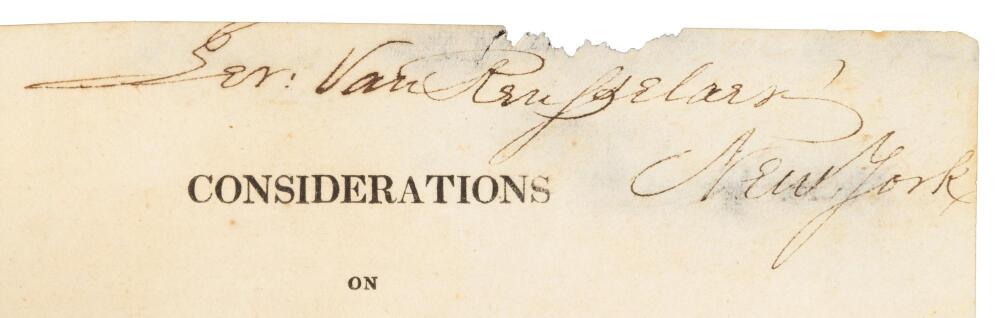 Ger: Van Rensselaer
New York
CONSIDERATIONS
ON